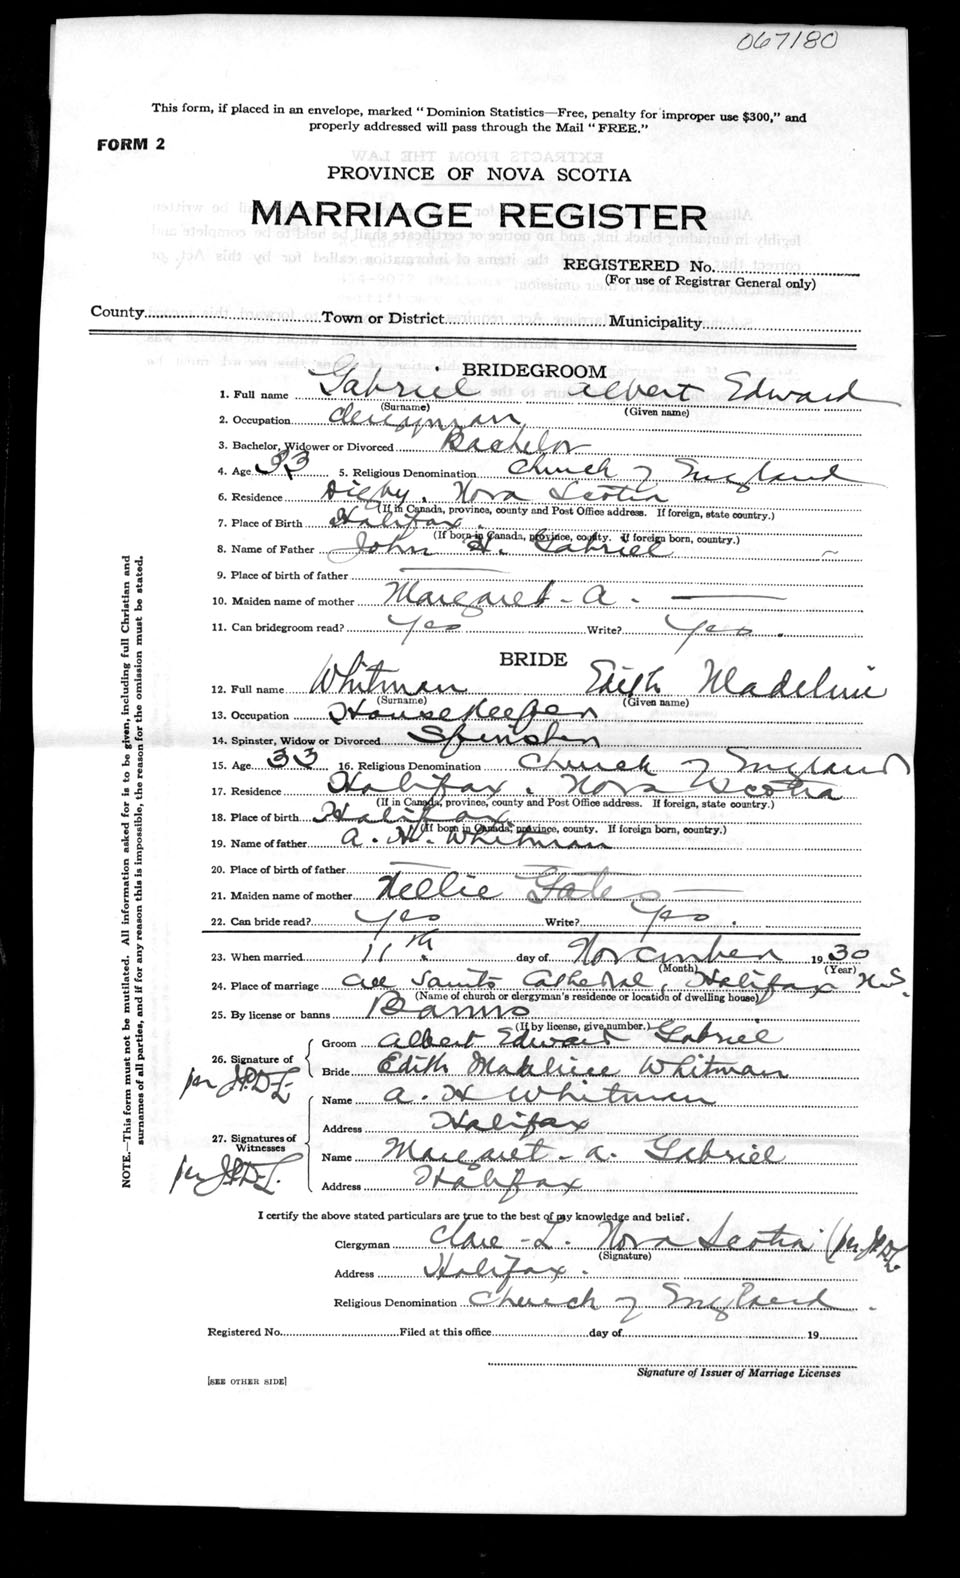 067180
This form, if placed in an envelope, marked “Dominion Statistics—Free, penalty for improper use $300,” and
properly addressed will pass through the Mail “FREE.”
FORM 2
PROVINCE OF NOVA SCOTIA
MARRIAGE REGISTER
REGISTERED No.
(For use of Registrar General only)
County Town or District Municipality
BRIDEGROOM
1. Full name Gabriel Albert Edward
(Surname) (Given name)
2. Occupation Clergyman
3. Bachelor, Widower or Divorced Bachelor
4. Age 33 5. Religious Denomination Church of England
6. Residence Digby, Nova Scotia
(If in Canada, province, county and Post Office address. If foreign, state country.)
7. Place of Birth Halifax
(If born in Canada, province, county. If foreign born, country.)
8. Name of Father John H. Gabriel
9. Place of birth of father —
10. Maiden name of mother Margaret - A. —
11. Can bridegroom read? Yes Write? Yes.
BRIDE
12. Full name Whitman Edith Madeline
(Surname) (Given name)
13. Occupation Housekeeper
14. Spinster, Widow or Divorced Spinster
15. Age 33 16. Religious Denomination Church of England
17. Residence Halifax, Nova Scotia
(If in Canada, province, county and Post Office address. If foreign, state country.)
18. Place of birth Halifax
(If born in Canada, province, county. If foreign born, country.)
19. Name of father A. H. Whitman
20. Place of birth of father —
21. Maiden name of mother Nellie Gates —
22. Can bride read? Yes Write? Yes.
23. When married 11th day of November 1930
(Month) (Year)
24. Place of marriage All Saints Cathedral, Halifax N.S.
(Name of church or clergyman's residence or location of dwelling house)
25. By license or banns Banns
(If by license, give number.)
26. Signature of Groom Albert Edward Gabriel
Bride Edith Madeline Whitman
per
27. Signatures of Witnesses Name A. H Whitman
Address Halifax
Name Margaret - A. Gabriel
Address Halifax
per
I certify the above stated particulars are true to the best of my knowledge and belief.
Clergyman Clare - L. Nova Scotia (per
(Signature)
Address Halifax.
Religious Denomination Church of England.
Registered No. Filed at this office day of 19
Signature of Issuer of Marriage Licenses
[SEE OTHER SIDE]
NOTE.—This form must not be mutilated. All information asked for is to be given, including full Christian and
surnames of all parties, and if for any reason this is impossible, the reason for the omission must be stated.